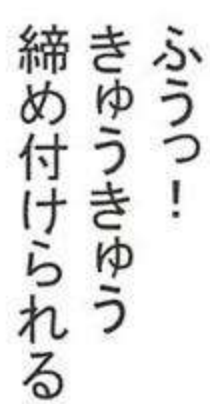 ふうっ！
きゅうきゅう
締め付けられる